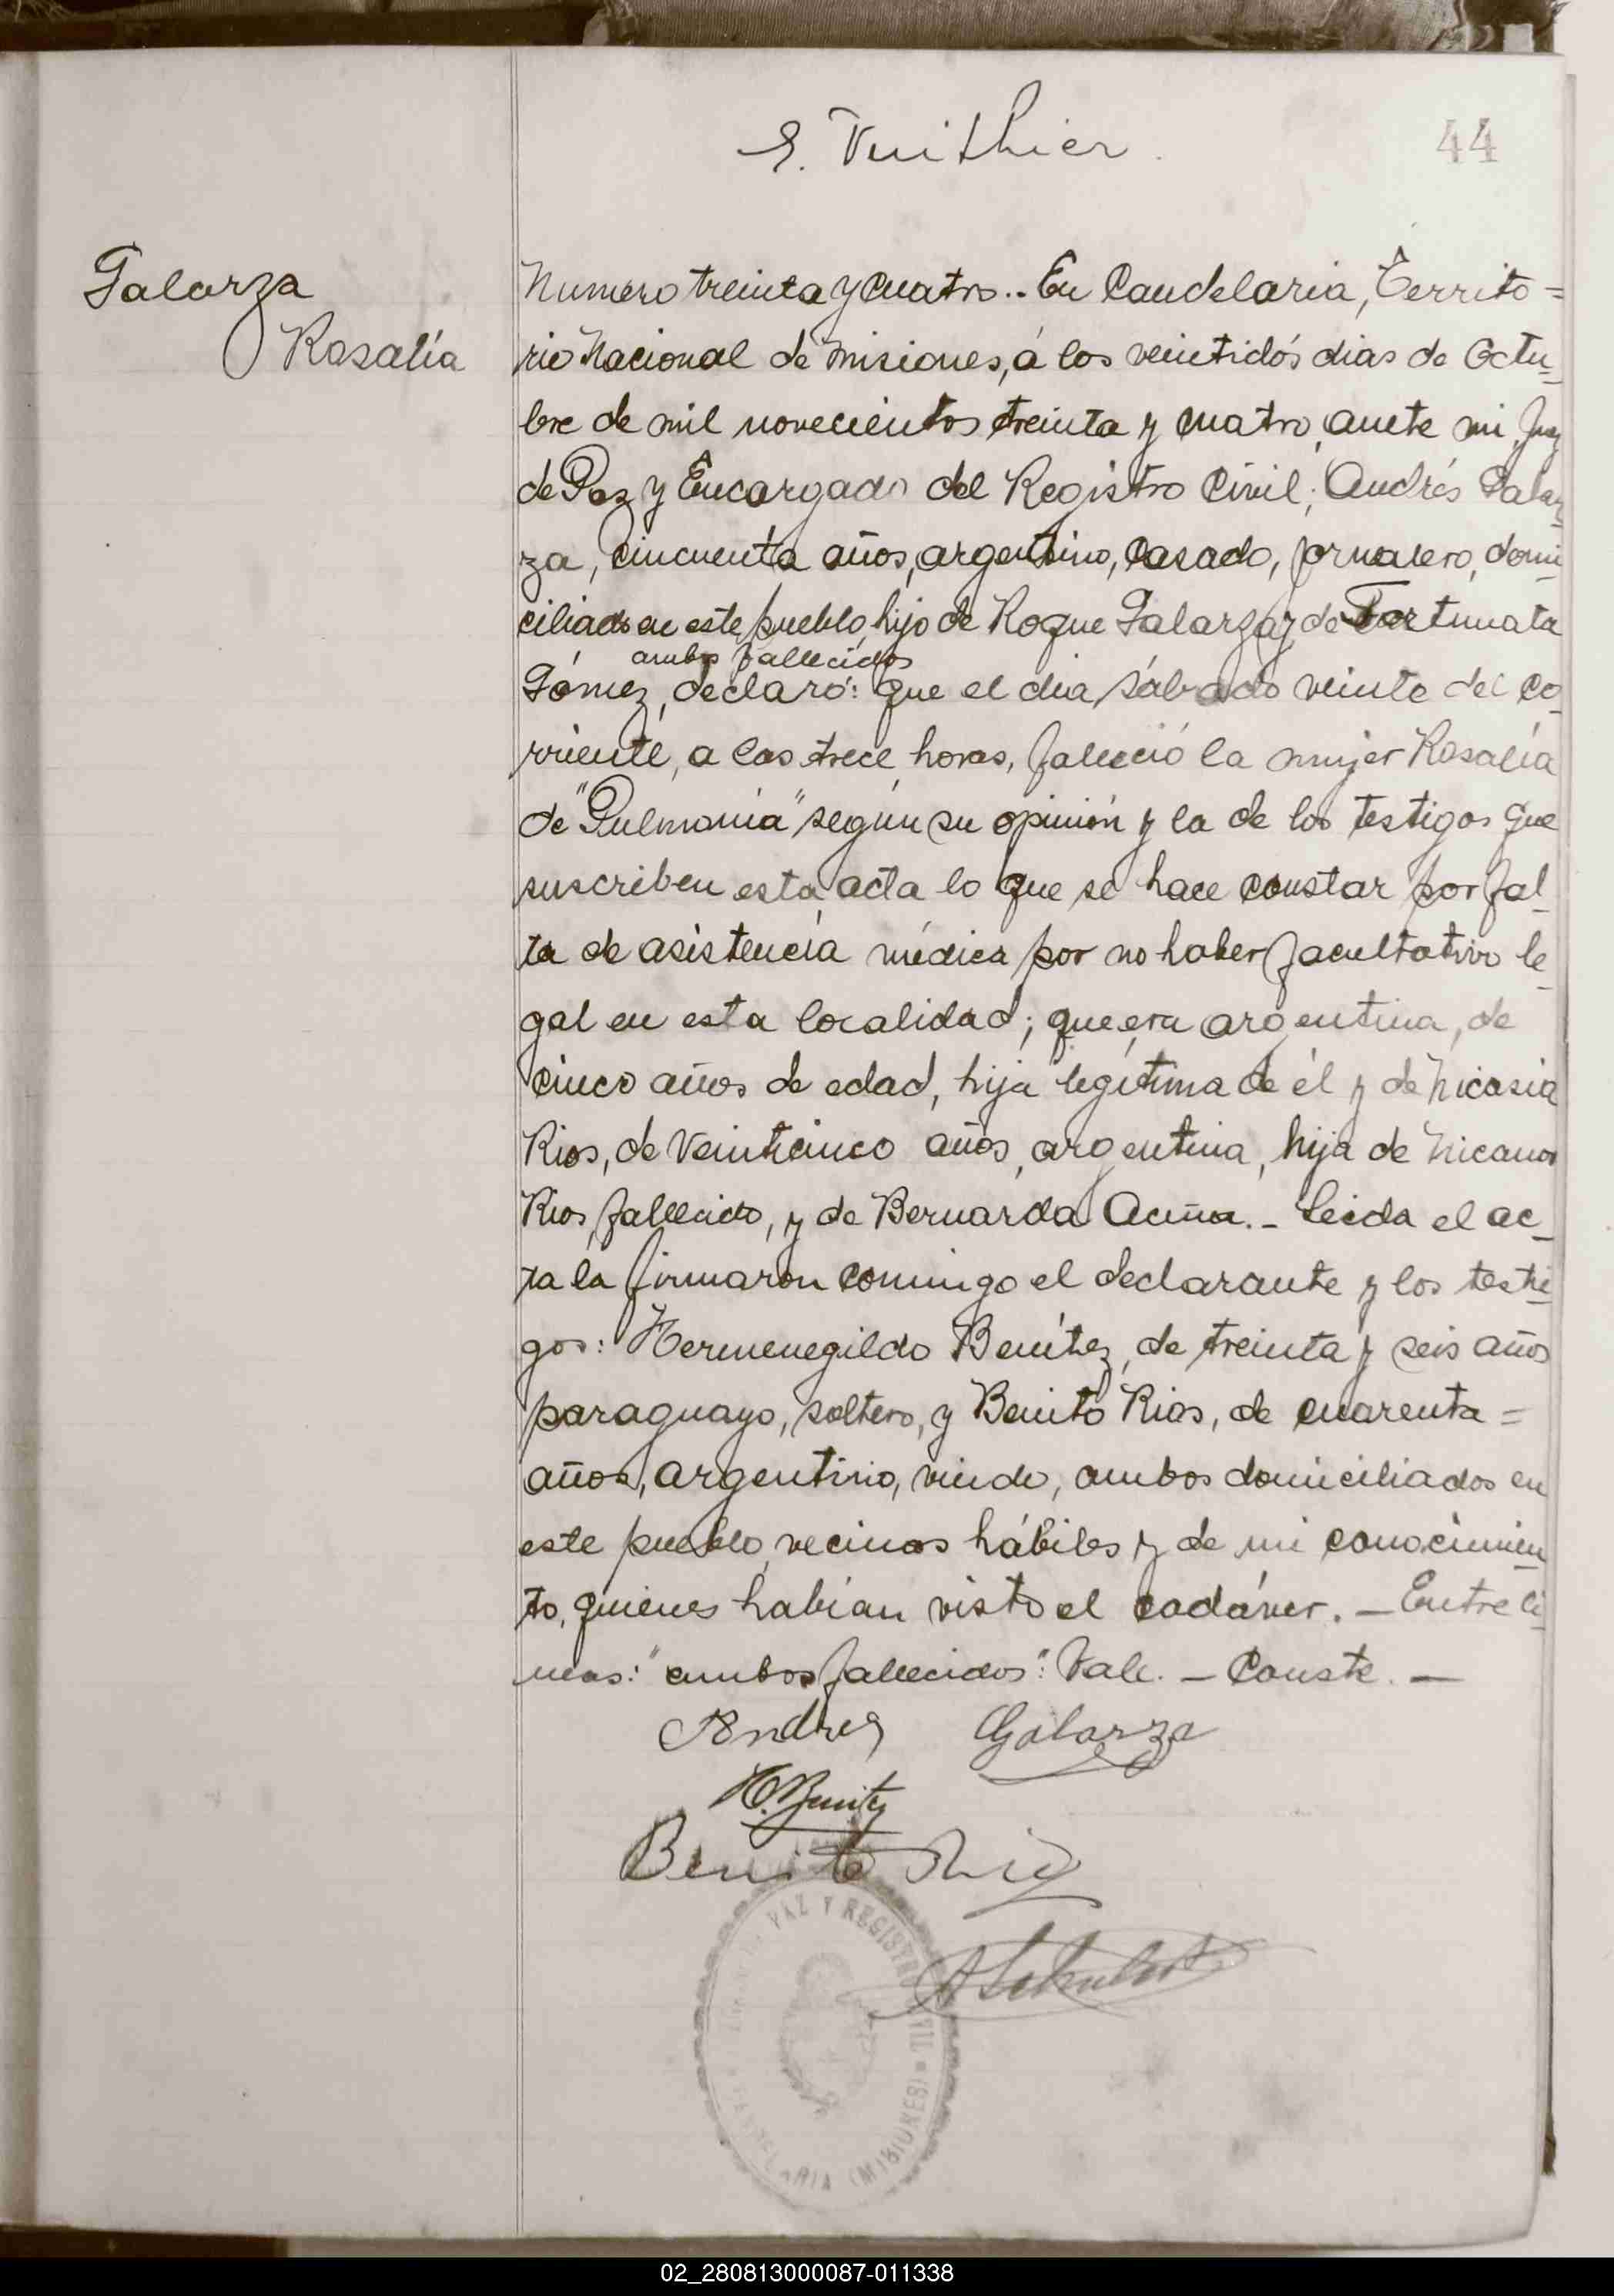 E. Vuithier
44
Galarza
Rosalía
Numero treinta y cuatro.. En Candelaria, Territo=
rio Nacional de Misiones, á los veintidós dias de Octu-
bre de mil novecientos treinta y cuatro, ante mi, Juez
de Paz y Encargado del Registro Civil; Andrés Galar-
za, cincuenta años, argentino, casado, jornalero, domi-
ciliado en este pueblo, hijo de Roque Galarza y de Fortunata
ambos fallecidos
Gómez, declaró: que el dia sábado veinte del co-
rriente, a las trece horas, falleció la mujer Rosalía
de "Pulmonía" según su opinión y la de los testigos que
suscriben esta acta lo que se hace constar por fal-
ta de asistencia médica por no haber facultativo le-
gal en esta localidad; que era argentina, de
cinco años de edad, hija legítima de él y de Nicasia
Rios, de veinticinco años, argentina, hija de Nicanor
Rios, fallecido, y de Bernarda Acuña. _ Leida el ac-
ta la firmaron conmigo el declarante y los testi-
gos: Hermenegildo Benítez, de treinta y seis años
paraguayo, soltero, y Benito Rios, de cuarenta =
años, argentino, viudo, ambos domiciliados en
este pueblo, vecinos hábiles y de mi conocimien-
to, quienes habían visto el cadáver. — Entre li-
neas: "ambos fallecidos": Vale. — Conste. —
Andres Galarza
H. Benitez
Benito Rios
PAZ Y REGISTRO CIVIL
CANDELARIA (MISIONES)
02_280813000087-011338